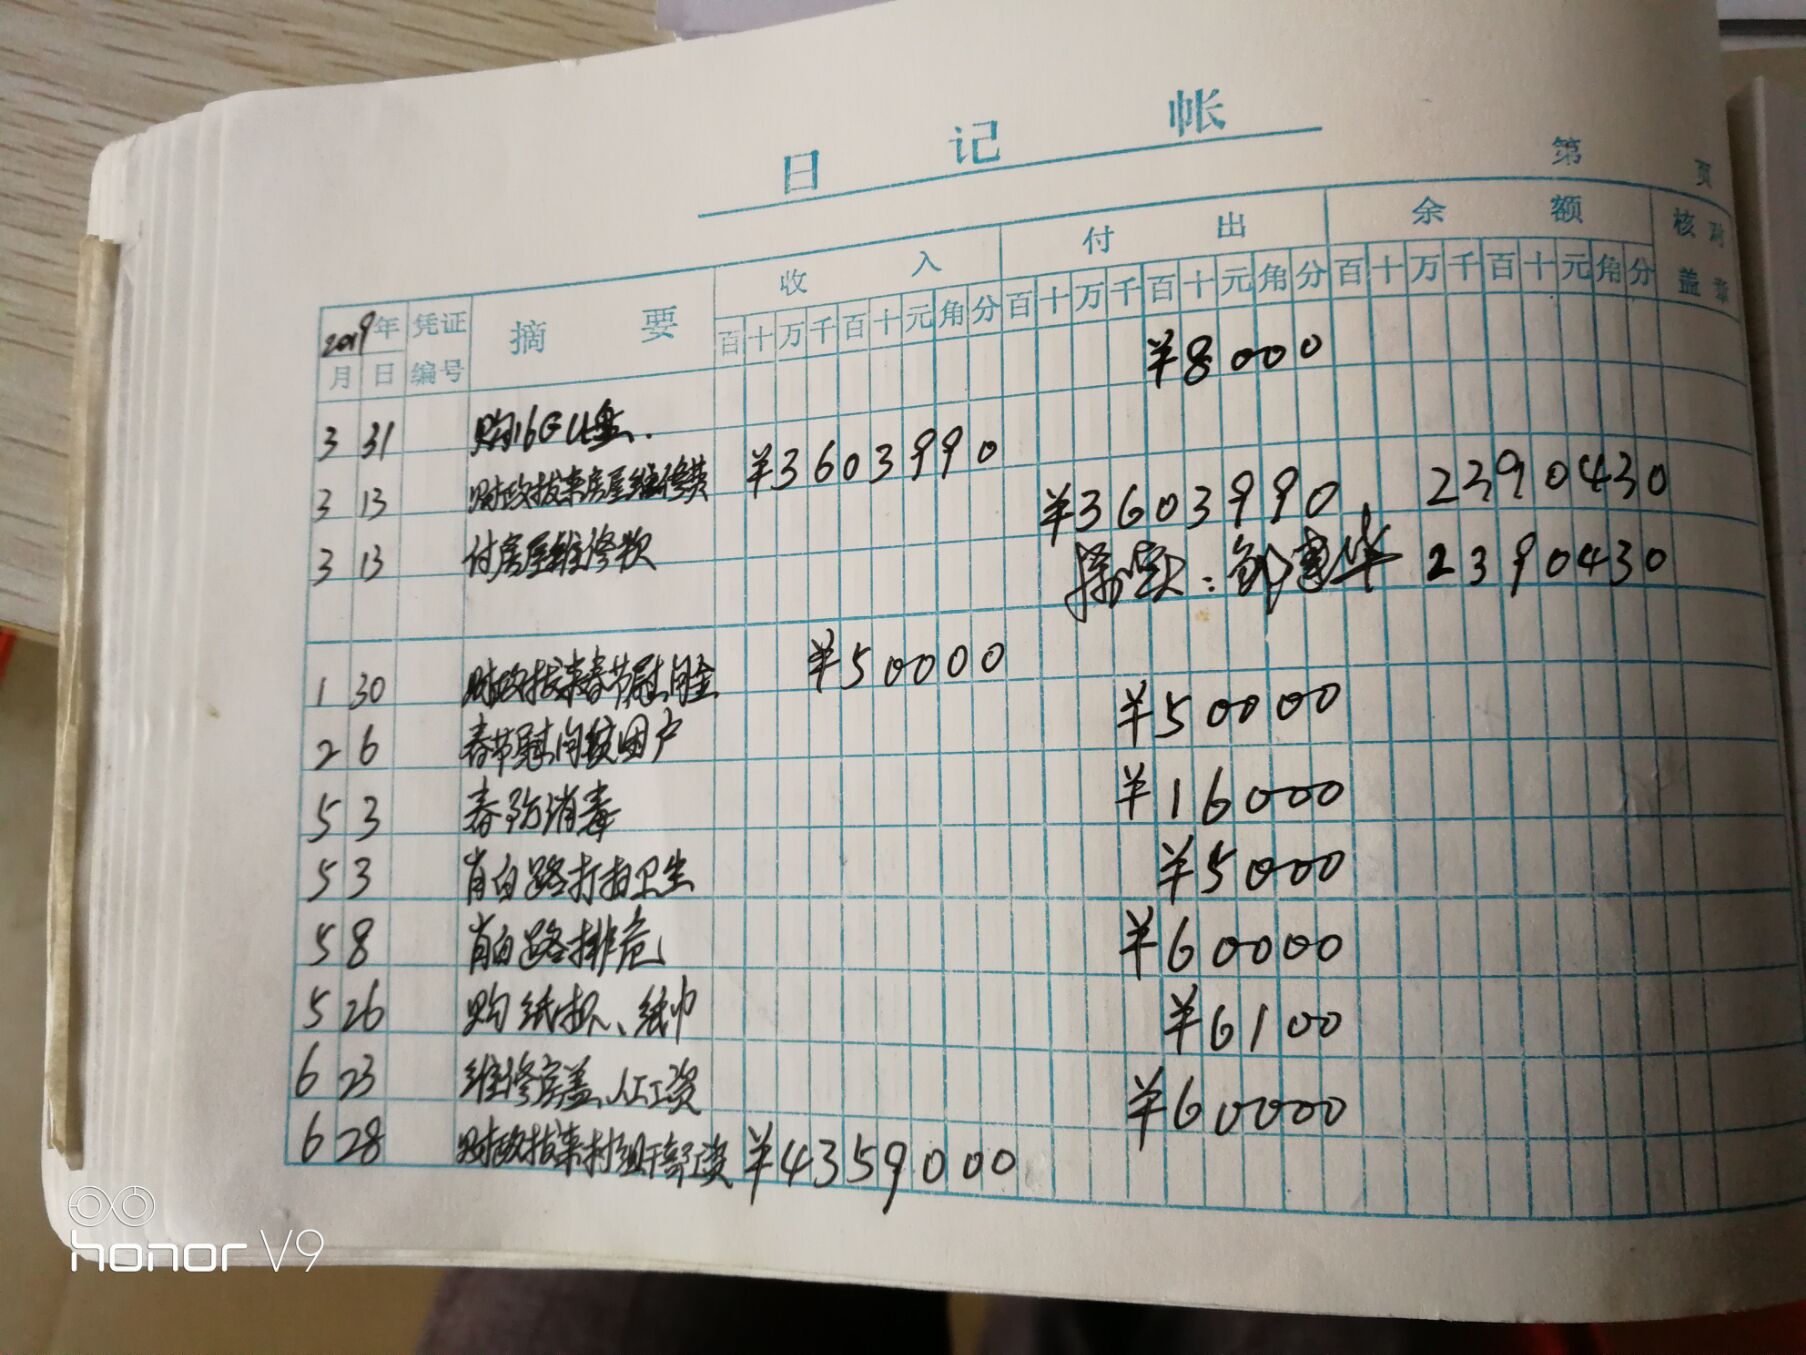 日 记 帐
第 页
2019年 凭证编号 摘要 收入 付出 余额 核对盖章
月 日 百十万千百十元角分 百十万千百十元角分 百十万千百十元角分
3 31 购16GU盘. ¥8000
3 13 财政拨来房屋维修费 ¥3603990 2390430
3 13 付房屋维修款 ¥3603990 2390430
1 30 财政拨来春节慰问金 ¥50000
2 6 春节慰问贫困户 ¥50000
5 3 春防消毒 ¥16000
5 3 肖白路打扫卫生 ¥5000
5 8 肖白路排危 ¥60000
5 26 购纸杯、纸巾 ¥6100
6 23 维修房盖、人工资 ¥60000
6 28 财政拨来村组干部工资 ¥4359000
honor V9